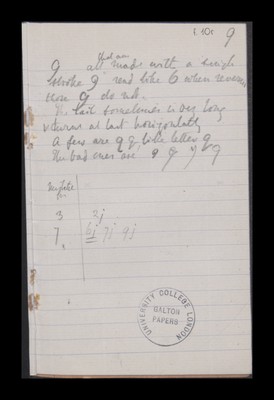 1.10r 9
9 all made with a single
stroke 9 read like 6 when reversed
These 9 do not.
The tail sometimes is very long
& turns at last horizontally
A few are 9 g like letter g
The bad ones are 9
3 2j
7 6j 7j 9j
UNIVERSITY COLLEGE LONDON
GALTON
PAPERS